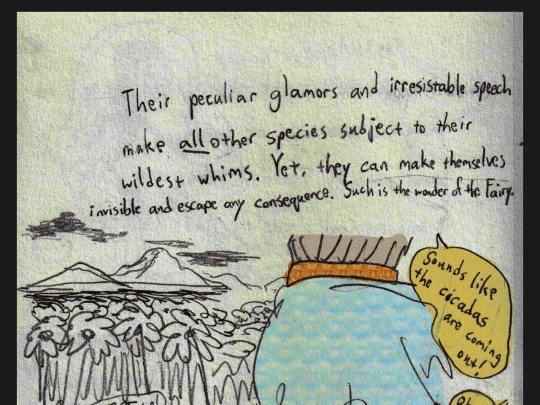 Their peculiar glamors and irresistable speech
make all other species subject to their
wildest whims. Yet, they can make themselves
invisible and escape any consequence. Such is the wonder of the Fairy.
Sounds like
the cicadas
are coming
out!